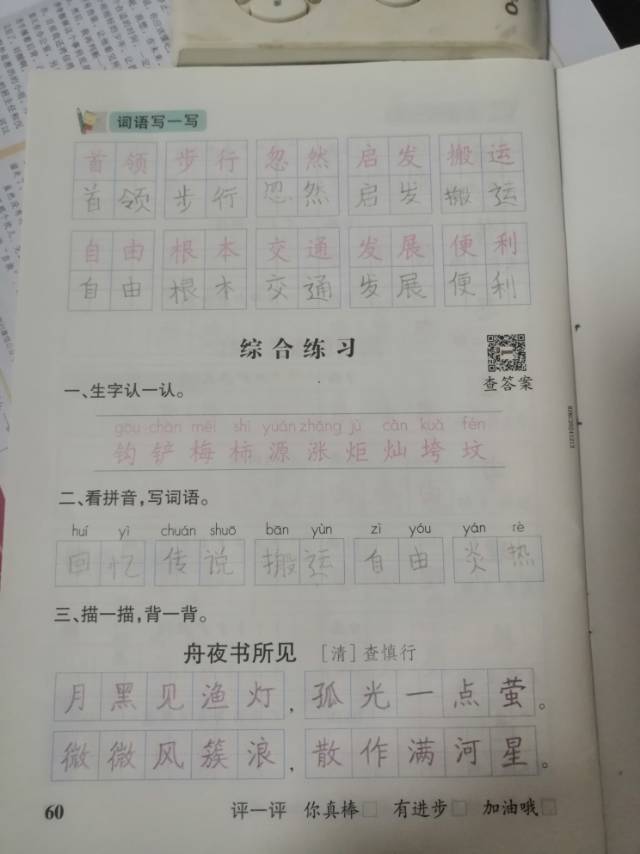 词语写一写
首领 步行 忽然 启发 搬运
首领 步行 忽然 启发 搬运
自由 根本 交通 发展 便利
自由 根本 交通 发展 便利
综合练习
查答案
一、生字认一认。
gōu chǎn méi shì yuán zhǎng jù càn kuǎ fén
钩 铲 梅 柿 源 涨 炬 灿 垮 坟
二、看拼音,写词语。
huí yì chuán shuō bān yùn zì yóu yán rè
回忆 传说 搬运 自由 炎热
三、描一描,背一背。
舟夜书所见 [清]查慎行
月黑见渔灯,孤光一点萤。
微微风簇浪,散作满河星。
60 评一评 你真棒□ 有进步□ 加油哦□